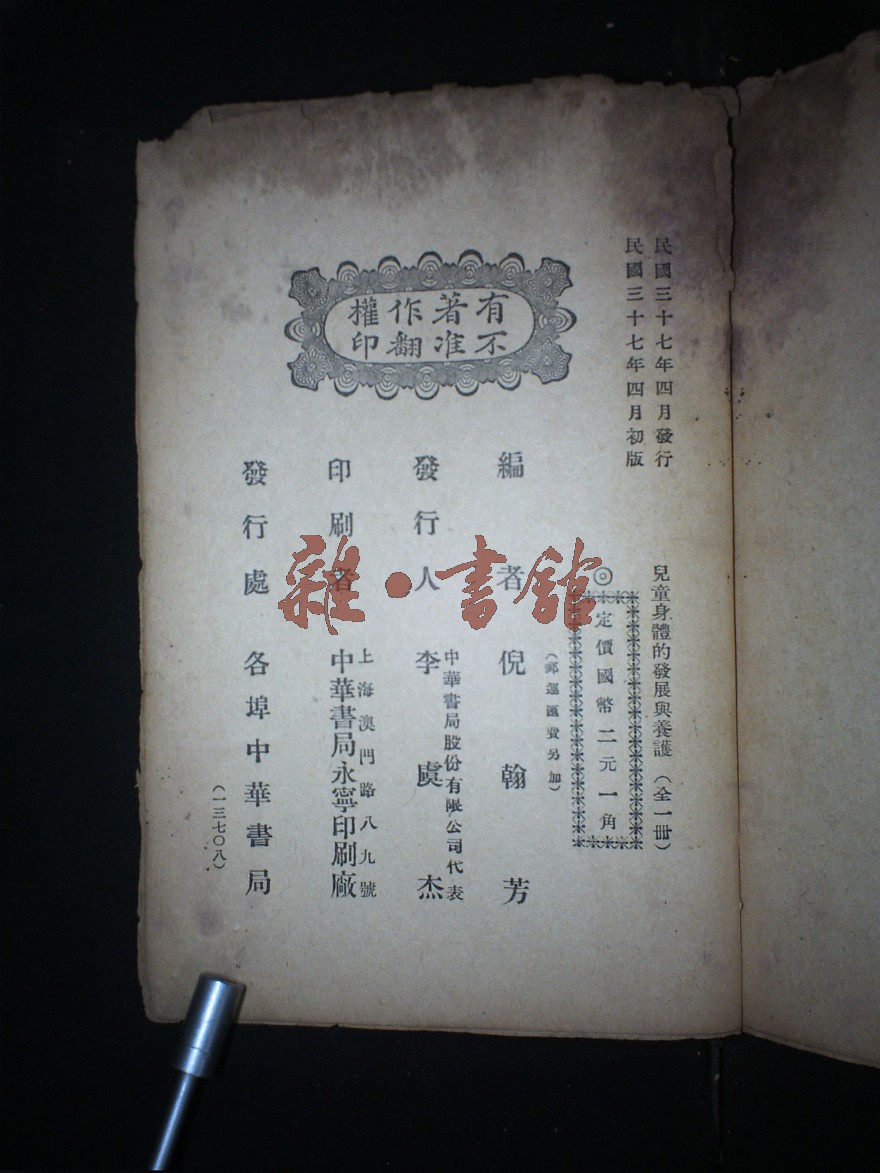 民國三十七年四月發行
民國三十七年四月初版
兒童身體的發展與養護（全一冊）
◎定價國幣二元一角
（郵運匯費另加）
有著作權
不准翻印
編者 倪翰芳
發行人 李虞杰
中華書局股份有限公司代表
印刷者
上海澳門路八九號
中華書局永寧印刷廠
發行處 各埠中華書局
（一三七〇八）
雜·書館